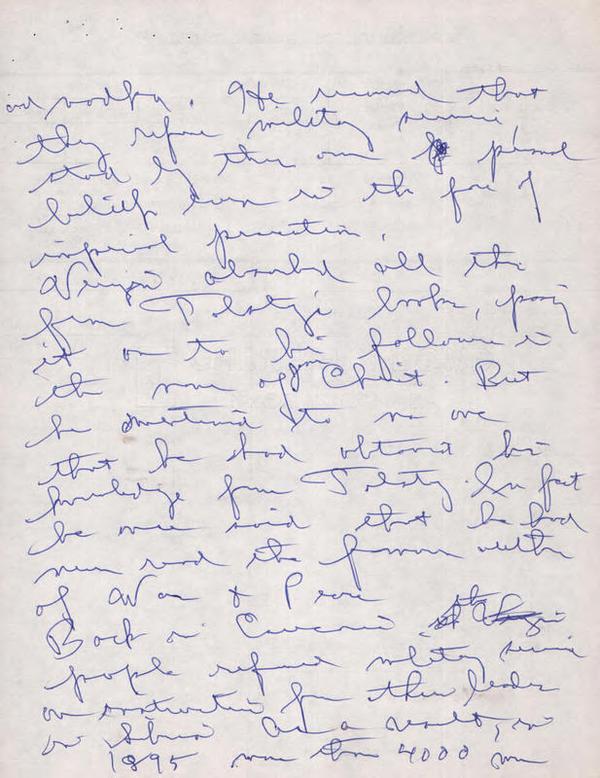 and vodka. He resumed that
they refuse military service,
stand by their own personal
beliefs even in the face of
imperial persecution.
Verigin absorbed all this
from Tolstoy's books, passing
it on to his followers in
the name of Christ. But
he mentioned to no one
that he had obtained his
knowledge from Tolstoy. In fact
he once said that he had
never read the famous author
of War & Peace
Back in Caucasus the
people refused military service
on instruction from their leader
in Siberia. As a result, in
1895 more than 4000 were